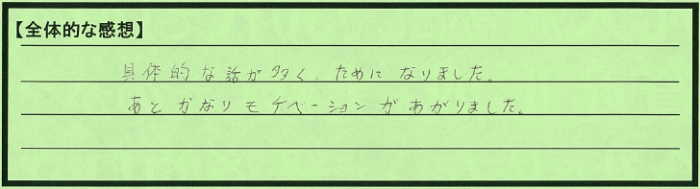 【全体的な感想】
具体的な話が多く、ためになりました。
あとかなりモチベーションがあがりました。